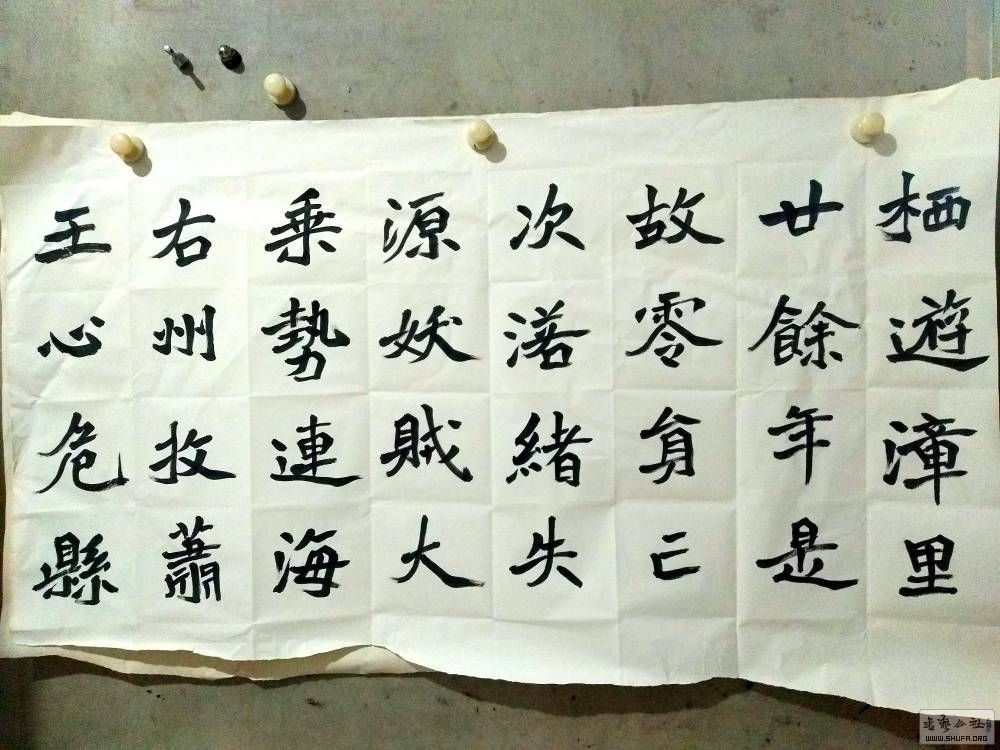 栖遊漳里
廿餘年是
故零貟亡
次渃緒失
源妖賊大
乗勢連海
右州牧蕭
王心危縣
书艺公社
WWW.SHUFA.ORG